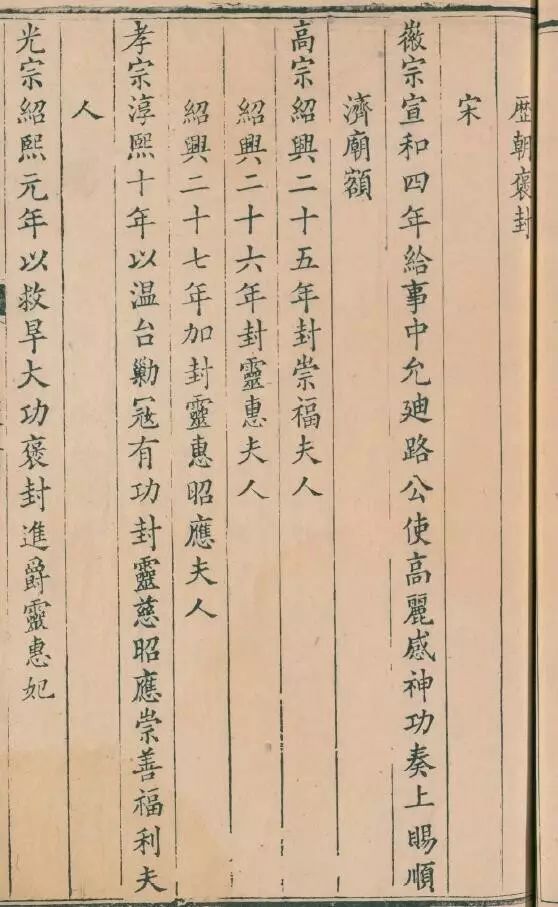 歴朝褒封
宋
徽宗宣和四年給事中允廸路公使高麗感神功奏上賜順
濟廟額
高宗紹興二十五年封崇福夫人
紹興二十六年封靈惠夫人
紹興二十七年加封靈惠昭應夫人
孝宗淳熙十年以温台勦冦有功封靈慈昭應崇善福利夫
人
光宗紹熙元年以救旱大功褒封進爵靈惠妃